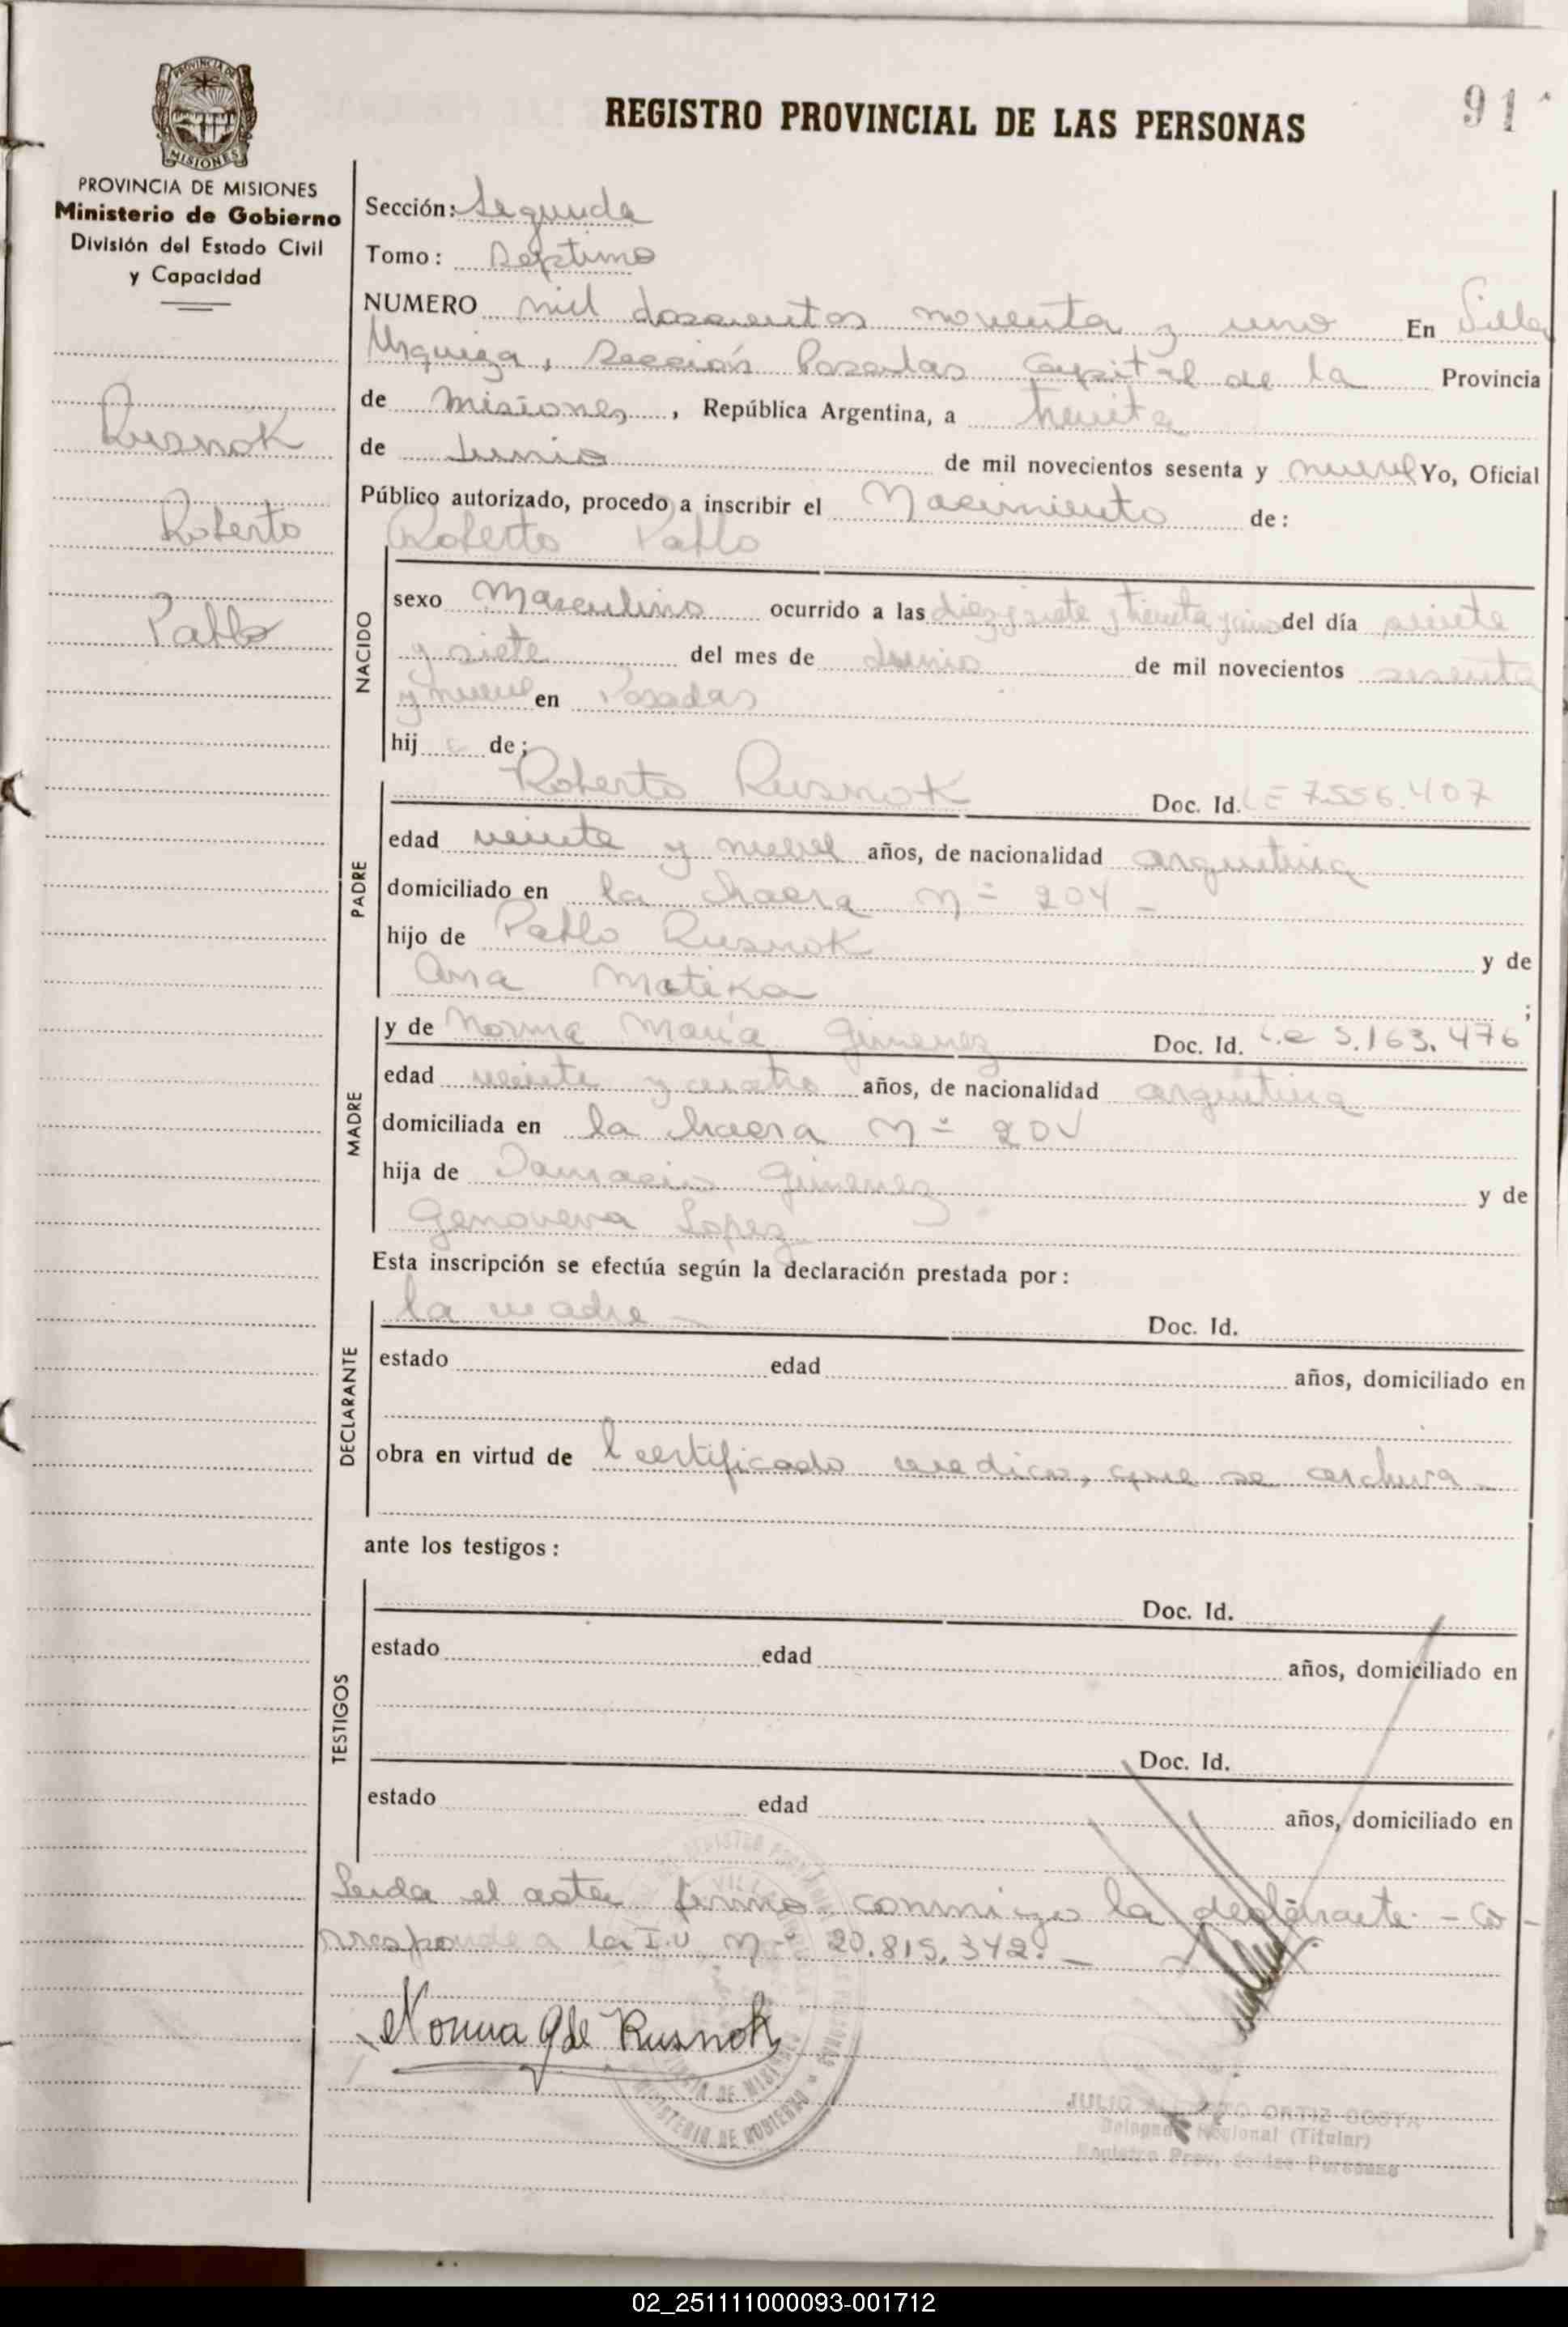 91
REGISTRO PROVINCIAL DE LAS PERSONAS
PROVINCIA DE
MISIONES
PROVINCIA DE MISIONES
Ministerio de Gobierno
División del Estado Civil
y Capacidad
Rusnok
Roberto
Pablo
Sección: Segunda
Tomo: Septimo
NUMERO mil doscientos noventa y uno En Villa
Urquiza, Sección Posadas Capital de la Provincia
de Misiones, República Argentina, a treinta
de Junio de mil novecientos sesenta y nueve Yo, Oficial
Público autorizado, procedo a inscribir el Nacimiento de:
Roberto Pablo
NACIDO
sexo Masculino ocurrido a las diez y siete y treinta y cinco del día veinte
y siete del mes de Junio de mil novecientos sesenta
y nueve en Posadas
hij o de;
PADRE
Roberto Rusnok Doc. Id. LE 7.556.407
edad veinte y nueve años, de nacionalidad argentina
domiciliado en la chacra Nº 204 -
hijo de Pablo Rusnok y de
Ana Matika ;
MADRE
y de Norma María Gimenez Doc. Id. L.C 5.163.476
edad veinte y cuatro años, de nacionalidad argentina
domiciliada en la chacra Nº 204
hija de Damacio Gimenez y de
Genoveva Lopez
Esta inscripción se efectúa según la declaración prestada por:
DECLARANTE
la madre - Doc. Id.
estado edad años, domiciliado en
obra en virtud de l certificado medico, que se archiva -
ante los testigos:
TESTIGOS
Doc. Id.
estado edad años, domiciliado en
Doc. Id.
estado edad años, domiciliado en
Leida el acta firma conmigo la declarante. - Co -
rresponde a la I.U Nº 20.815.342. -
Norma G de Rusnok
MINISTERIO DE GOBIERNO
JULIO ORTIZ COSTA
Delegado Regional (Titular)
Registro Prov. de las Personas
02_251111000093-001712